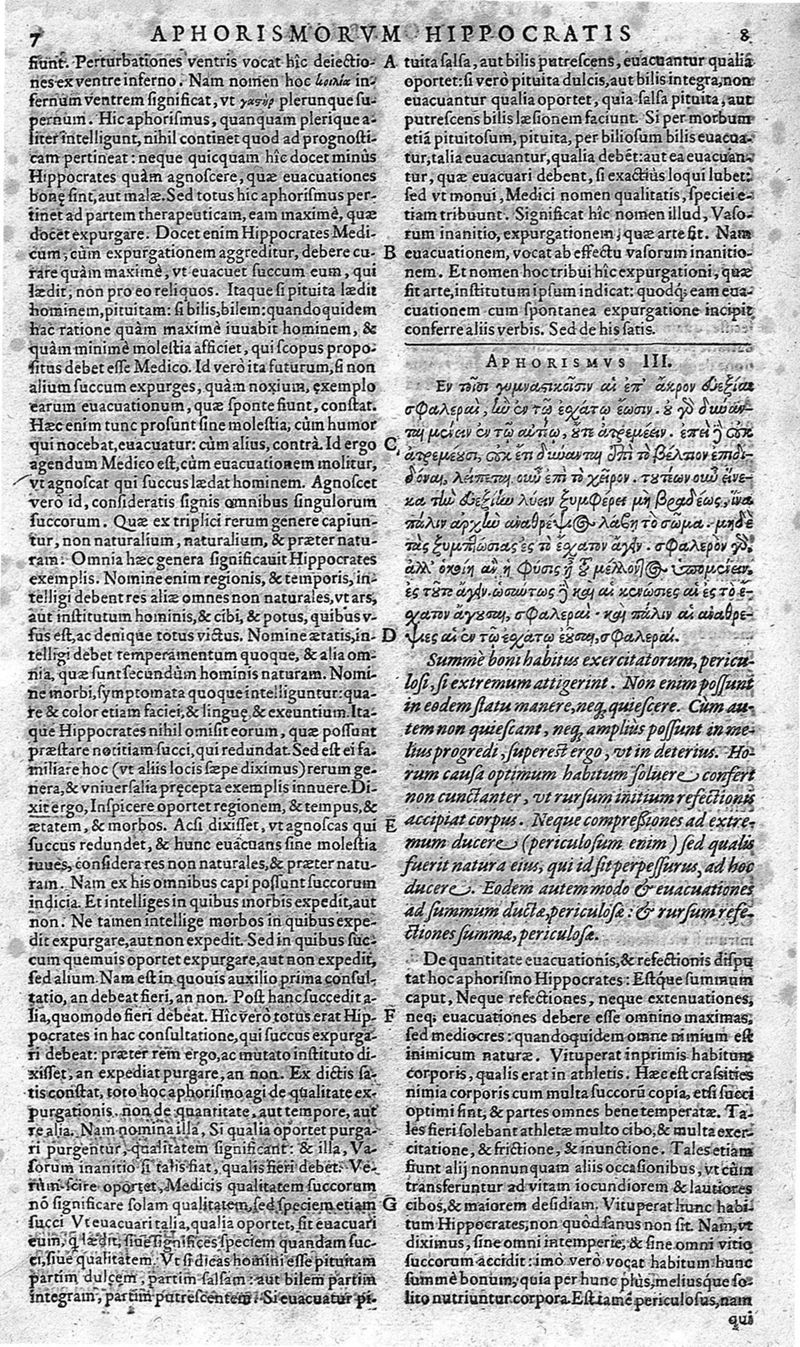 7 APHORISMORVM HIPPOCRATIS 8
fiunt. Perturbationes ventris vocat hîc deiectio-
nes ex ventre inferno. Nam nomen hoc κοιλία in-
fernum ventrem significat, vt γαςὴρ plerunque su-
pernum. Hic aphorismus, quanquam plerique a-
liter intelligunt, nihil continet quod ad prognosti-
cam pertineat: neque quicquam hîc docet minùs
Hippocrates quàm agnoscere, quæ euacuationes
bonę sint, aut malæ. Sed totus hic aphorismus per-
tinet ad partem therapeuticam, eam maximè, quæ
docet expurgare. Docet enim Hippocrates Medi-
cum, cùm expurgationem aggreditur, debere cu-
rare quàm maximè, vt euacuet succum eum, qui
lædit, non pro eo reliquos. Itaque si pituita lædit
hominem, pituitam: si bilis, bilem: quandoquidem
hac ratione quàm maximè iuuabit hominem, &
quàm minimè molestia afficiet, qui scopus propo-
situs debet esse Medico. Id verò ita futurum, si non
alium succum expurges, quàm noxium, exemplo
earum euacuationum, quæ sponte fiunt, constat.
Hæc enim tunc prosunt sine molestia, cùm humor
qui nocebat, euacuatur: cùm alius, contrà. Id ergo
agendum Medico est, cùm euacuationem molitur,
vt agnoscat qui succus lædat hominem. Agnoscet
verò id, consideratis signis omnibus singulorum
succorum. Quæ ex triplici rerum genere capiun-
tur, non naturalium, naturalium, & præter natu-
ram: Omnia hæc genera significauit Hippocrates
exemplis. Nomine enim regionis, & temporis, in-
telligi debent res aliæ omnes non naturales, vt ars,
aut institutum hominis, & cibi, & potus, quibus v-
sus est, ac denique totus victus. Nomine ætatis, in-
telligi debet temperamentum quoque, & alia om-
nia, quæ sunt secundùm hominis naturam. Nomi-
ne morbi, symptomata quoque intelliguntur: qua-
re & color etiam faciei, & linguę, & exeuntium. Ita-
que Hippocrates nihil omisit eorum, quæ possunt
præstare notitiam succi, qui redundat. Sed est ei fa-
miliare hoc (vt aliis locis sæpe diximus) rerum ge-
nera, & vniuersalia pręcepta exemplis innuere. Di-
xit ergo, Inspicere oportet regionem, & tempus, &
ætatem, & morbos. Acsi dixisset, vt agnoscas qui
succus redundet, & hunc euacuans sine molestia
iuues, considera res non naturales, & præter natu-
ram. Nam ex his omnibus capi possunt succorum
indicia. Et intelliges in quibus morbis expedit, aut
non. Ne tamen intellige morbos in quibus expe-
dit expurgare, aut non expedit. Sed in quibus suc-
cum quemuis oportet expurgare, aut non expedit,
sed alium. Nam est in quouis auxilio prima consul-
tatio, an debeat fieri, an non. Post hanc succedit a-
lia, quomodo fieri debeat. Hîc verò totus erat Hip-
pocrates in hac consultatione, qui succus expurga-
ri debeat: præter rem ergo, ac mutato instituto di-
xisset, an expediat purgare, an non. Ex dictis sa-
tis constat, toto hoc aphorismo agi de qualitate ex-
purgationis, non de quantitate, aut tempore, aut
re alia. Nam nomina illa, Si qualia oportet purga-
ri purgentur, qualitatem significant: & illa, Va-
sorum inanitio si talis fiat, qualis fieri debet. Ve-
rùm scire oportet, Medicis qualitatem succorum
nō significare solam qualitatem, sed speciem etiam
succi Vt euacuari talia, qualia oportet, sit euacuari
eum, q̃ lædit, siue significes speciem quandam suc-
ci, siue qualitatem. Vt si dicas homini esse pituitam
partim dulcem, partim salsam: aut bilem partim
integram, partim putrescentem. Si euacuatur pi-
A tuita salsa, aut bilis putrescens, euacuantur qualia
oportet: si verò pituita dulcis, aut bilis integra, non
euacuantur qualia oportet, quia salsa pituita, aut
putrescens bilis læsionem faciunt. Si per morbum
etiā pituitosum, pituita, per biliosum bilis euacua-
tur, talia euacuantur, qualia debēt: aut ea euacuan-
tur, quæ euacuari debent, si exactiùs loqui lubet:
sed vt monui, Medici nomen qualitatis, speciei e-
tiam tribuunt. Significat hîc nomen illud, Vaso-
rum inanitio, expurgationem, quæ arte fit. Nam
B euacuationem, vocat ab effectu vasorum inanitio-
nem. Et nomen hoc tribui hîc expurgationi, quæ
fit arte, institutum ipsum indicat: quodq; eam eua-
cuationem cum spontanea expurgatione incipit
conferre aliis verbis. Sed de his satis.
APHORISMVS III.
Εν τοῖσι γυμναςικοῖσιν αἱ ἐπ' ἄκρον ἀεξίαι
σφαλεραὶ, ἢν ἐν τῷ ἐσχάτῳ ἔωσιν. οὐ γὸ δύναν-
C ται μένειν ἐν τῷ αὐτέῳ, οὔτε ἀτρεμέειν. ἐπεὶ ἢ οὐκ
ἀτρεμέουσι, οὐκ ἔτι δύνανται ἐπὶ τὸ βέλτιον ἐπιδι-
δόναι, λείπεται οὖν ἐπὶ τὸ χεῖρον. τουτέων οὖν εἵνε-
κα τὴν ἀεξίην λύειν ξυμφέρει μὴ βραδέως, ἵνα
πάλιν ἀρχὴν ἀναθρέψιος λάβῃ τὸ σῶμα. μηδὲ
τὰς ξυμπτώσιας ἐς τὸ ἔσχατον ἄγειν. σφαλερὸν γὸ,
ἀλλ' ὁκοίη ἂν ἡ φύσις ᾖ τοῦ μέλλοντος ὑπομένειν,
ἐς τοῦτο ἄγειν. ὡσαύτως ἢ καὶ αἱ κενώσιες αἱ ἐς τὸ ἔ-
σχατον ἄγουσαι, σφαλεραί. καὶ πάλιν αἱ ἀναθρέ-
D ψιες αἱ ἐν τῷ ἐσχάτῳ ἐοῦσαι, σφαλεραί.
Summè boni habitus exercitatorum, pericu-
losi, si extremum attigerint. Non enim possunt
in eodem statu manere, neq; quiescere. Cùm au-
tem non quiescant, neq; ampliùs possunt in me-
lius progredi, superest ergo, vt in deterius. Ho-
rum causa optimum habitum soluere confert
non cunctanter, vt rursum initium refectionis
E accipiat corpus. Neque compressiones ad extre-
mum ducere (periculosum enim) sed qualis
fuerit natura eius, qui id sit perpessurus, ad hoc
ducere. Eodem autem modo & euacuationes
ad summum ductæ, periculosæ: & rursum refe-
ctiones summæ, periculosæ.
De quantitate euacuationis, & refectionis dispu
tat hoc aphorismo Hippocrates: Estque summum
caput, Neque refectiones, neque extenuationes,
F neq; euacuationes debere esse omnino maximas,
sed mediocres: quandoquidem omne nimium est
inimicum naturæ. Vituperat inprimis habitum
corporis, qualis erat in athletis. Hæc est crassities
nimia corporis cum multa succorū copia, etsi succi
optimi sint, & partes omnes bene temperatæ. Ta-
les fieri solebant athletæ multo cibo, & multa exer-
citatione, & frictione, & inunctione. Tales etiam
fiunt alij nonnunquam aliis occasionibus, vt cùm
transferuntur ad vitam iocundiorem & lautiores
G cibos, & maiorem desidiam. Vituperat hunc habi-
tum Hippocrates, non quòd sanus non sit. Nam, vt
diximus, sine omni intemperie, & sine omni vitio
succorum accidit: imò verò vocat habitum hunc
summè bonum, quia per hunc plus, meliusque so-
lito nutriuntur corpora. Est tamē periculosus, nam
qui